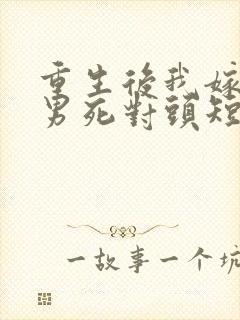 重生後我嫁
男死對頭短
一故事一个坑